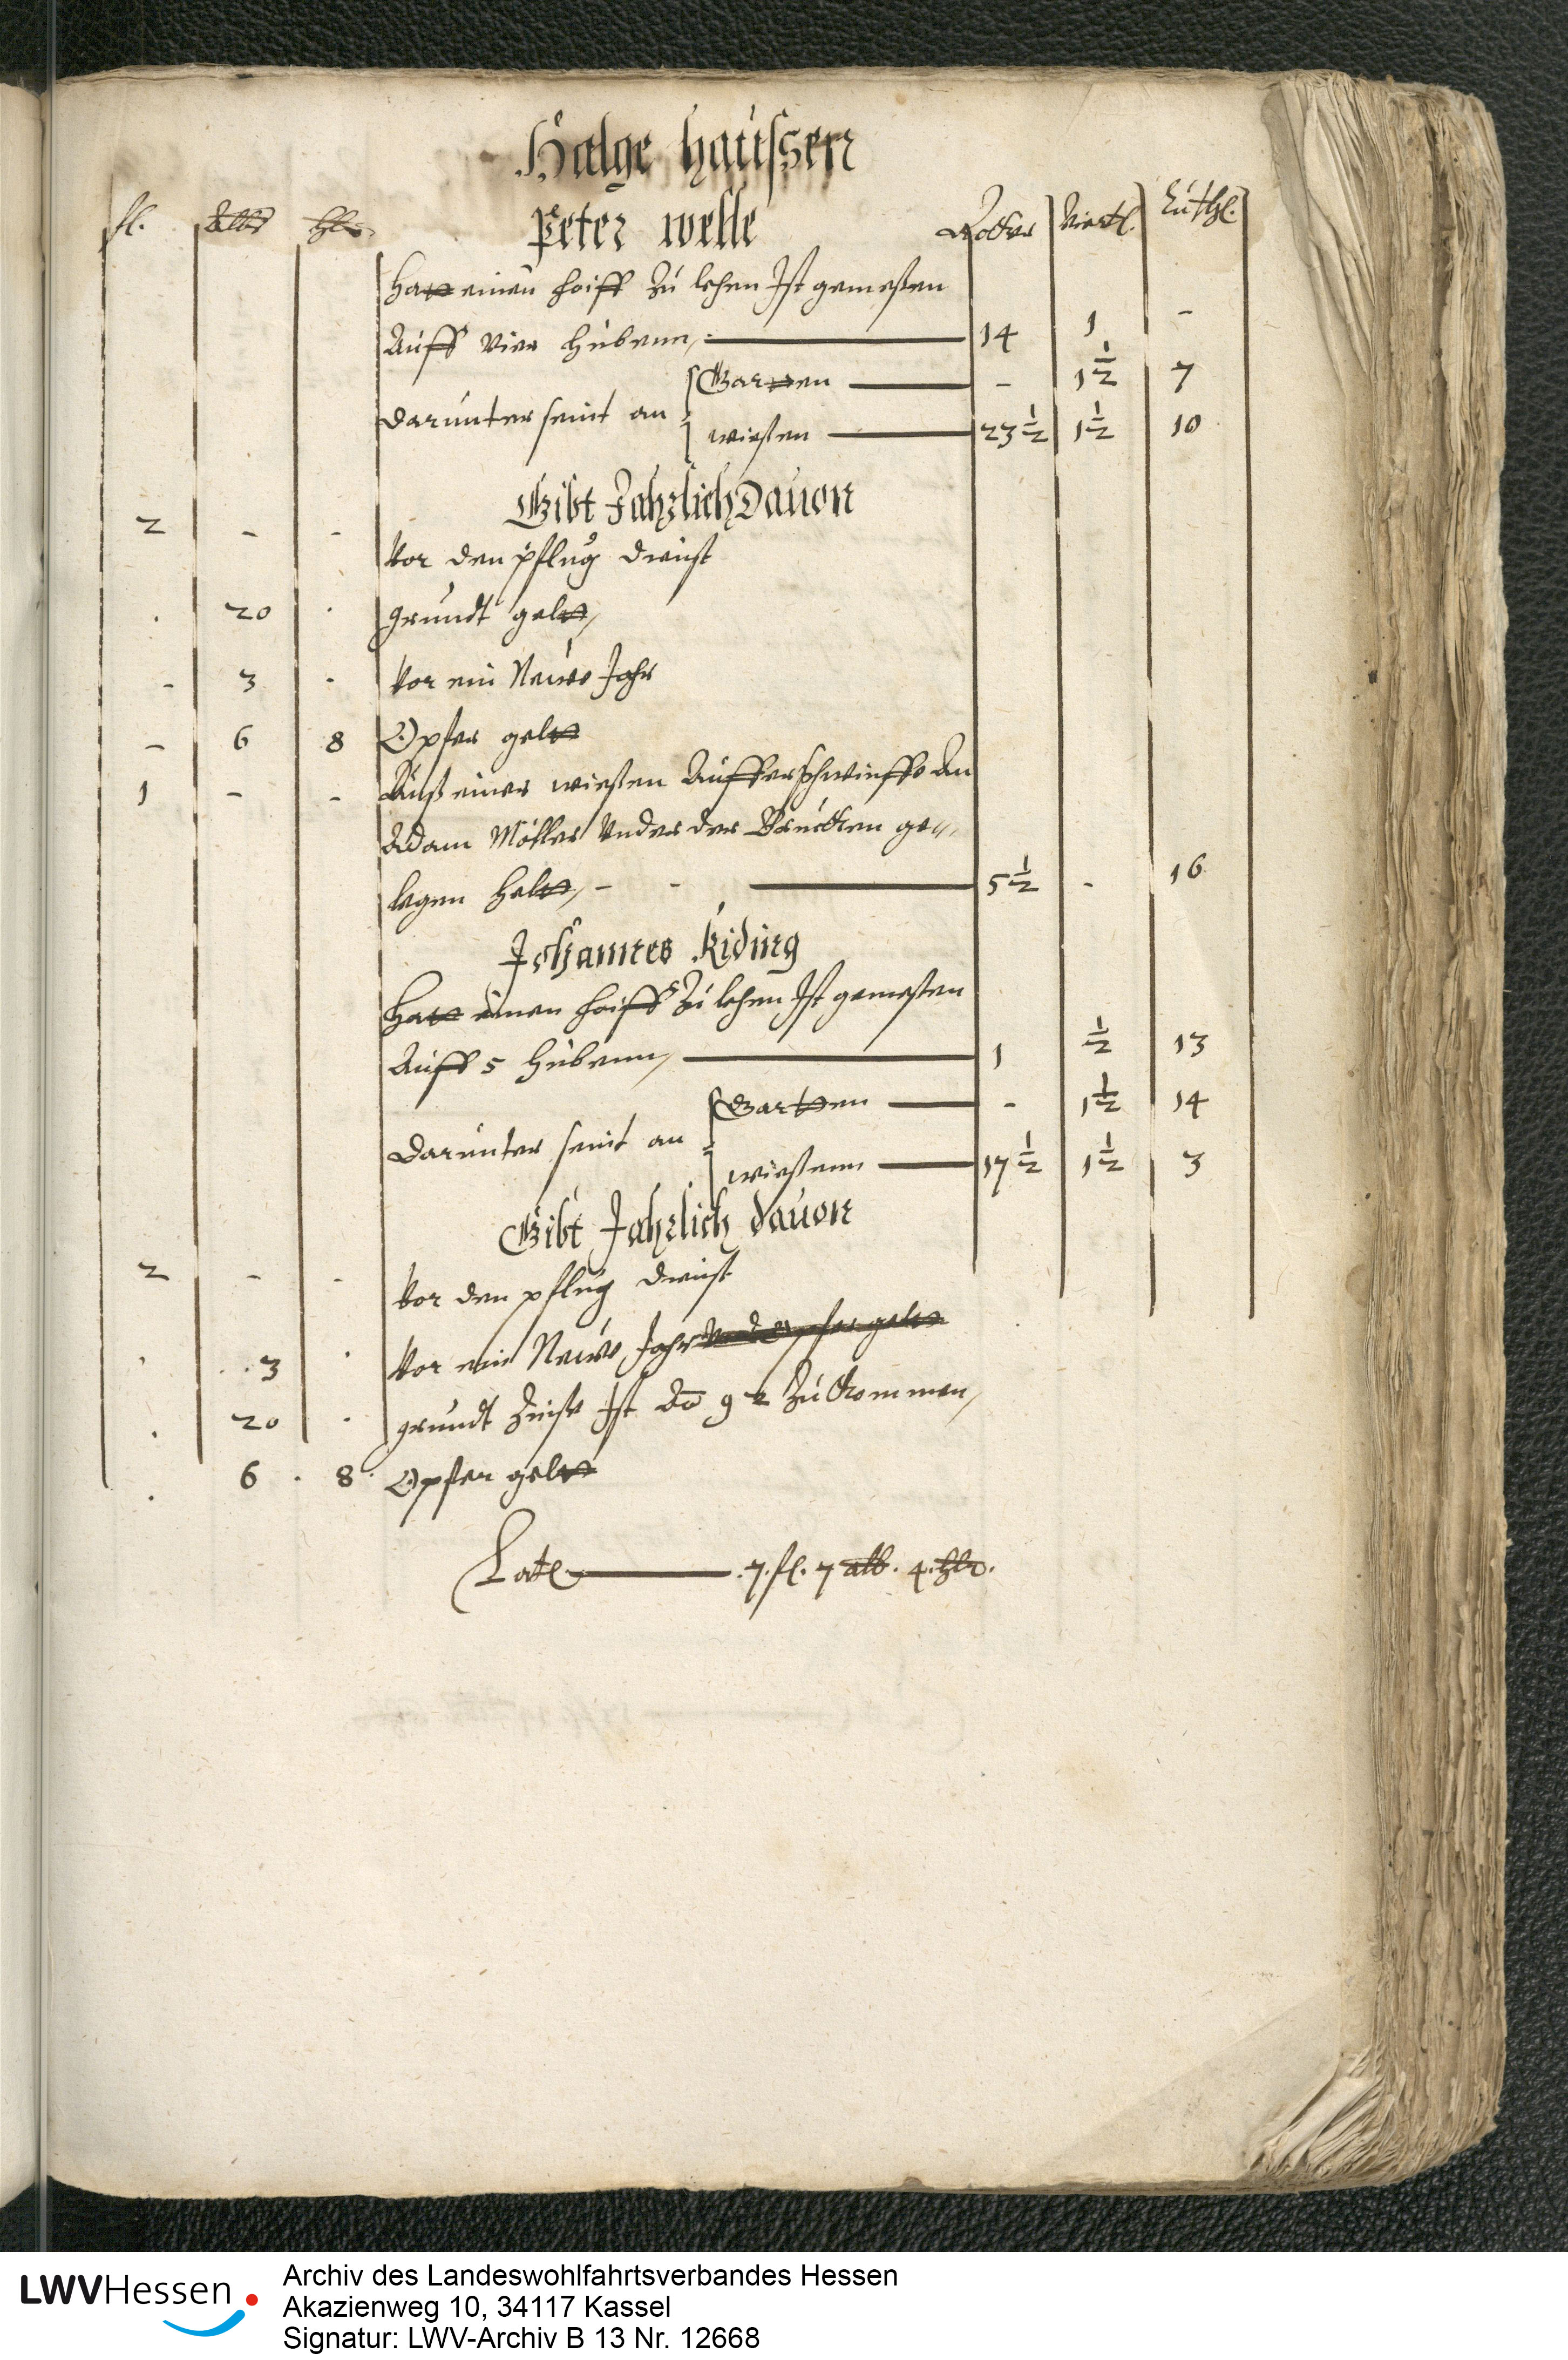 Halge haussen
fl. alb hlr Peter welle Acker Viertl. Ruthl.
Hatt einen hoiff zu lehen Ist gemessen
Auff vier hubenn, 14 1 -
darunter seint an Gartten - 1 1/2 7
wiessen 23 1/2 1 1/2 10
Gibt Jahrlich Dauon
2 - - Vor den pflug dienst
. 20 . grundt geltt,
- 3 - Vor ein Neuwe Jahr
- 6 8 Opfer geltt
1 - - Auß einer wiessen Auff der Schwinffe An
Adam Möller Under der Brucken ge„
legen heltt, - - 5 1/2 - 16
Johannes Riding
Hatt einen hoiff zu lehen Ist gemessen
Auff 5 hubenn, 1 1/2 13
darunter seint an Gartten - 1 1/2 14
wiessenn 17 1/2 1 1/2 3
Gibt Jahrlich dauon
2 - - Vor den pflug dienst
. 3 . Vor ein Neuwe Jahr Vnd Opfer geltt
. 20 . grundt Zinße Ist Ao 92 zukommen,
. 6 . 8. Opfer geltt
Late 7. fl. 7 alb. 4. hlr.
LWVHessen
Archiv des Landeswohlfahrtsverbandes Hessen
Akazienweg 10, 34117 Kassel
Signatur: LWV-Archiv B 13 Nr. 12668